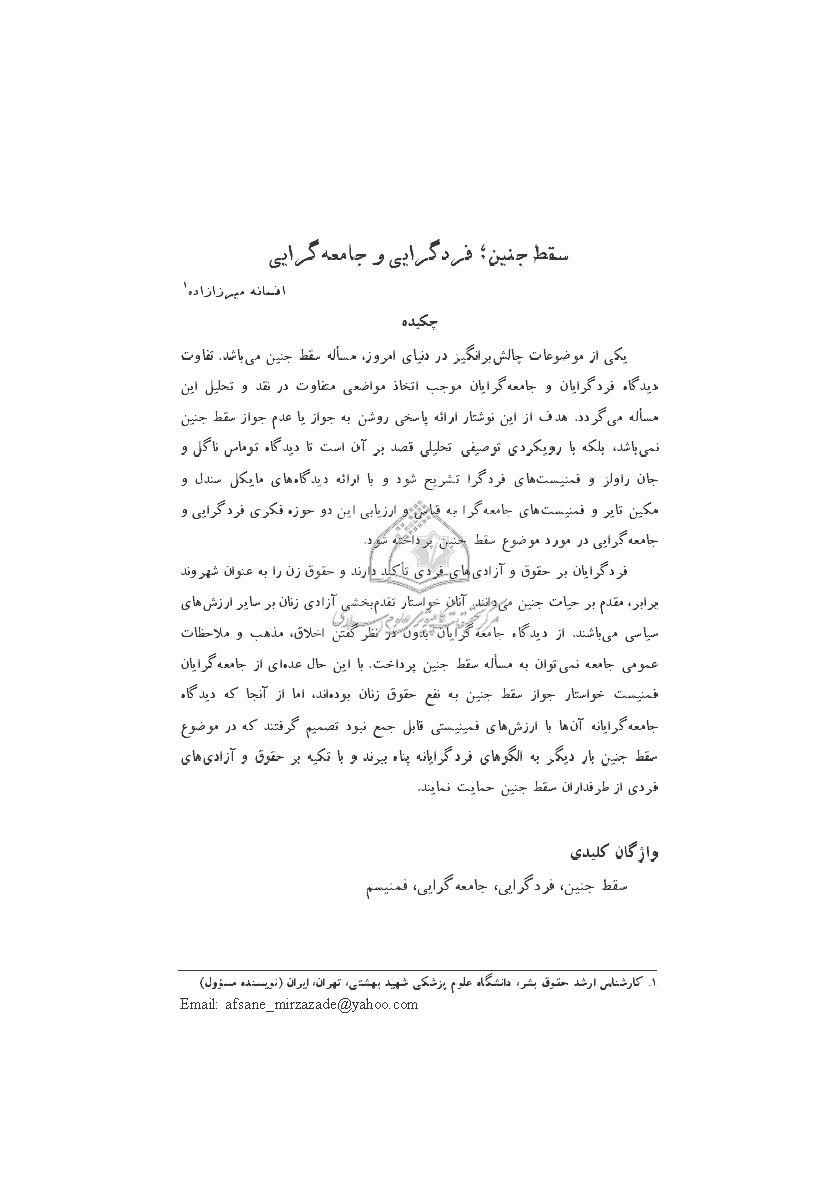 سقط جنین؛ فردگرایی و جامعه‌گرایی
افسانه میرزازاده۱
چکیده
یکی از موضوعات چالش‌برانگیز در دنیای امروز، مسأله سقط جنین می‌باشد. تفاوت
دیدگاه فردگرایان و جامعه‌گرایان موجب اتخاذ مواضعی متفاوت در نقد و تحلیل این
مسأله می‌گردد. هدف از این نوشتار ارائه پاسخی روشن به جواز یا عدم جواز سقط جنین
نمی‌باشد، بلکه با رویکردی توصیفی تحلیلی قصد بر آن است تا دیدگاه توماس ناگل و
جان راولز و فمنیست‌های فردگرا تشریح شود و با ارائه دیدگاه‌های مایکل سندل و
مکین تایر و فمنیست‌های جامعه‌گرا به قیاس و ارزیابی این دو حوزه فکری فردگرایی و
جامعه‌گرایی در مورد موضوع سقط جنین پرداخته شود.
فردگرایان بر حقوق و آزادی‌های فردی تأکید دارند و حقوق زن را به عنوان شهروند
برابر، مقدم بر حیات جنین می‌دانند. آنان خواستار تقدم‌بخشی آزادی زنان بر سایر ارزش‌های
سیاسی می‌باشند. از دیدگاه جامعه‌گرایان بدون در نظر گفتن اخلاق، مذهب و ملاحظات
عمومی جامعه نمی‌توان به مسأله سقط جنین پرداخت. با این حال عده‌ای از جامعه‌گرایان
فمنیست خواستار جواز سقط جنین به نفع حقوق زنان بوده‌اند، اما از آنجا که دیدگاه
جامعه‌گرایانه آن‌ها با ارزش‌های فمینیستی قابل جمع نبود تصمیم گرفتند که در موضوع
سقط جنین بار دیگر به الگوهای فردگرایانه پناه ببرند و با تکیه بر حقوق و آزادی‌های
فردی از طرفداران سقط جنین حمایت نمایند.
واژگان کلیدی
سقط جنین، فردگرایی، جامعه‌گرایی، فمنیسم
۱. کارشناس ارشد حقوق بشر، دانشگاه علوم پزشکی شهید بهشتی، تهران، ایران (نویسنده مسؤول)
Email: afsane_mirzazade@yahoo.com
مرکز تحقیقات کامپیوتری علوم اسلامی